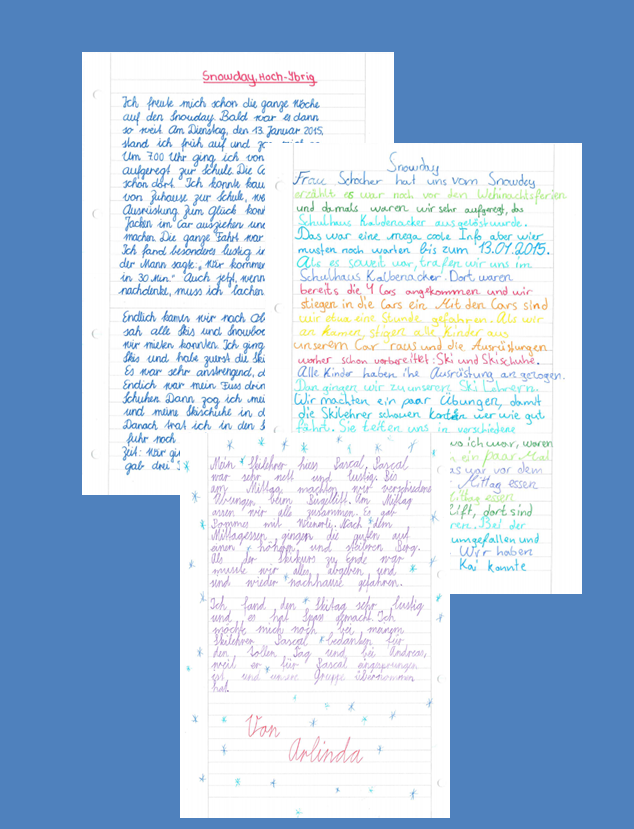 Snowday, Hoch-Ybrig
Ich freute mich schon die ganze Woche
auf den Snowday. Bald war es dann
so weit. Am Dienstag, den 13. Januar 2015,
stand ich früh auf und
Um 7.00 Uhr ging ich von
aufgeregt zur Schule. Die
schon dort. Ich konnte
von Zuhause zur Schule,
Ausrüstung. Zum Glück
Jacken im Car ausziehen
machen. Die ganze Fahrt war
Ich fand besonders lustig
der Mann sagte: „Wir kommen
in 30 Min“ Auch jetzt, wenn
nachdenke, muss ich lachen
Endlich kamen wir nach
sah alle Skis und
wir mieten konnten. Ich ging
Skis und habe zuerst die
Es war sehr anstrengend,
Endlich war mein Fuss drin
Schuhen. Dann zog ich
und meine Skischuhe in
Danach trat ich in den
fuhr noch
Zeit. Wir
gab drei
Snowday
Frau Schocher hat uns vom Snowdey
erzählt es war noch vor den Weihnachtsferien
und damals waren wir sehr aufgeregt, das
Schulhaus Kalbenacker ausgelöstwurde.
Das war eine mega coole Info aber wier
musten noch warten bis zum 13.01.2015.
Als es soweit war, trafen wir uns im
Schulhaus Kalbenacker. Dort waren
bereits die 4 Cars angekommen und wir
stiegen in die Cars ein. Mit den Cars sind
wir etwa eine Stunde gefahren. Als wir
an kamen, stigen alle Kinder aus
unserem Car raus und die Ausrüstungen
worher schon vorbereitet: Ski und Skischuhe.
Alle Kinder haben ihe Ausrüstung an gezogen.
Dan gingen wir zu unseren Ski Lehrern.
Wir machten ein paar Übungen, damit
die Skilehrer schauen konten wer wie gut
fährt. Sie teilten uns in verschiedene
wo ich war, waren
ein paar Mal
as war vor dem
Mittag essen
Mittag essen
Lift, dort sind
ren. Bei der
umgefallen und
Wir haben
Kai konnte
Mein Skilehrer hiess Pascal, Pascal
war sehr nett und lustig. Bis
am Mittag machten wir verschiedene
Übungen beim Bügellift. Am Mittag
assen wir alle zusammen. Es gab
Pommes mit Wienerli. Nach dem
Mittagessen gingen die guten auf
einen höheren und steileren Berg.
Als der Skikurs zu Ende war
musste wir alles abgeben und
und wieder nachhause gefahren.
Ich fand den Skitag sehr lustig
und es hat Spass gemacht. Ich
möchte mich noch bei meinem
Skilehrer Pascal bedanken für
den tollen Tag und bei Andreas,
weil er für Pascal eingsprungen
ist und unsere Gruppe übernommen
hat.
Von
Arlinda